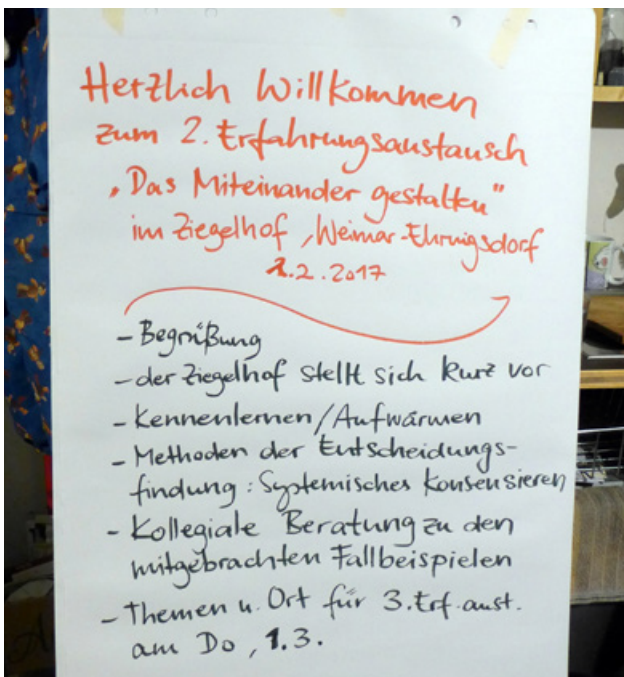 Herzlich Willkommen
zum 2. Erfahrungsaustausch
„Das Miteinander gestalten"
im Ziegelhof, Weimar-Ehringsdorf
1.2.2017
- Begrüßung
- der Ziegelhof stellt sich kurz vor
- Kennenlernen/Aufwärmen
- Methoden der Entscheidungs-
findung: Systemisches Konsensieren
- Kollegiale Beratung zu den
mitgebrachten Fallbeispielen
- Themen u. Ort für 3. Erf.aust.
am Do, 1.3.